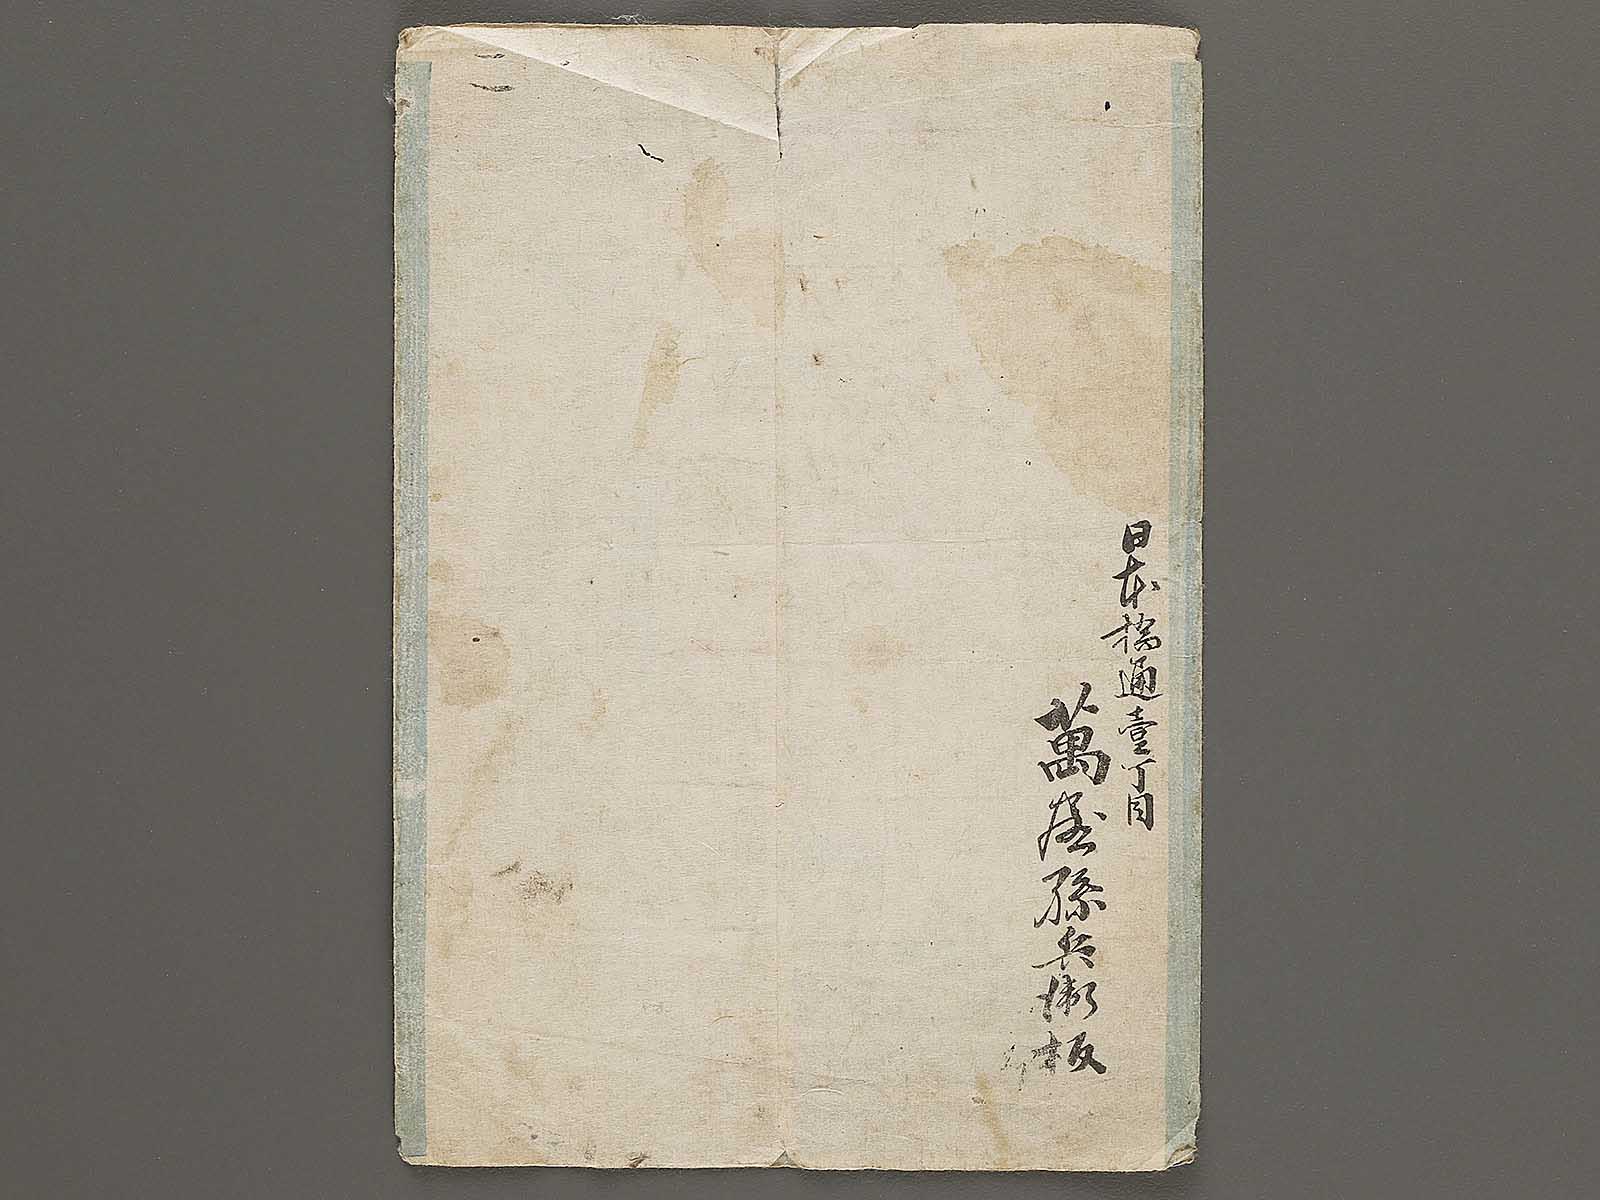 日本橋通壹丁目
萬屋孫兵衛板